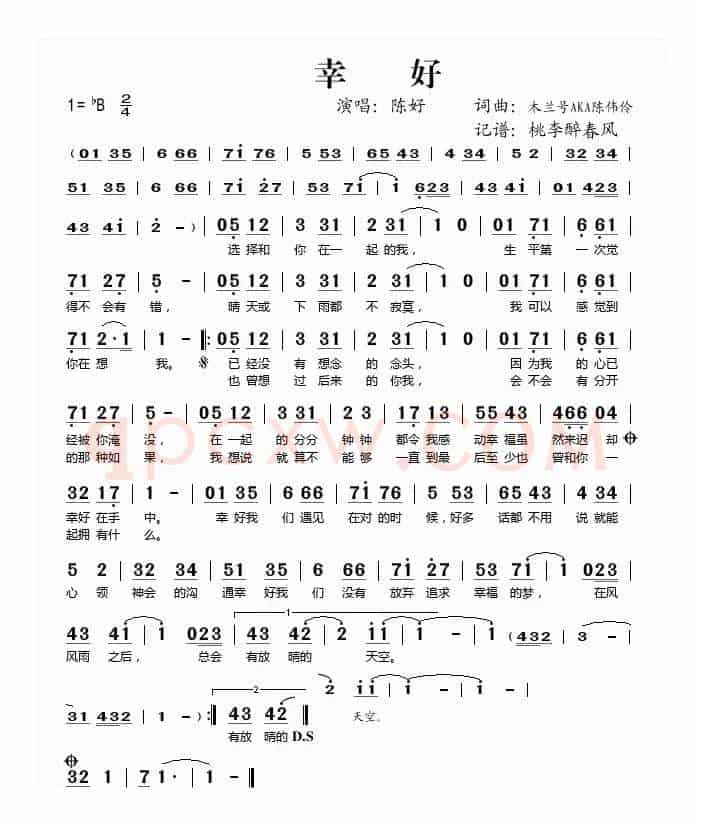 幸 好
1= ♭B 2/4 演唱：陈好 词曲：木兰号AKA陈伟伶
记谱：桃李醉春风
( 01 35 | 6 66 | 71 76 | 5 53 | 65 43 | 4 34 | 5 2 | 32 34 |
51 35 | 6 66 | 71 27 | 53 71 | 1 623 | 43 41 | 01 423 |
43 41 | 2 - ) | 05 12 | 3 31 | 2 31 | 1 0 | 01 71 | 6 61 |
选择和 你 在一 起的我， 生 平第 一 次觉
71 27 | 5 - | 05 12 | 3 31 | 2 31 | 1 0 | 01 71 | 6 61 |
得不 会有 错， 晴 天或 下 雨都 不 寂寞， 我 可以 感 觉到
71 2·1 | 1 - ‖: 05 12 | 3 31 | 2 31 | 1 0 | 01 71 | 6 61 |
你在 想 我。 已 经没 有 想念 的 念头， 因 为我 的 心已
也 曾想 过 后来 的 你我， 会 不会 有 分开
71 27 | 5 - | 05 12 | 3 31 | 2 31 | 1 17 13 | 55 43 | 466 04
经被 你淹 没， 在 一起 的 分分 钟 钟 都 令我感 动幸 福虽 然来迟 却
的那 种如 果， 我 想说 就 算不 能 够 一 直到 最 后至 少也 曾和你 一
32 17 | 1 - | 01 35 | 6 66 | 71 76 | 5 53 | 65 43 | 4 34 |
幸好 在手 中。 幸 好我 们 遇见 在对 的时 候， 好多 话都 不用 说 就能
起拥 有什 么。
5 2 | 32 34 | 51 35 | 6 66 | 71 27 | 53 71 | 1 023 |
心 领 神会 的沟 通幸 好我 们 没有 放弃 追求 幸福 的梦， 在风
43 41 | 1 023 | 43 42 | 2 11 | 1 - | 1 - | (432 3 |
风雨 之后， 总会 有放 晴的 天空。
31 432 | 1 - ) :‖ 43 42 ‖ 2 11 | 1 - | 1 - ‖
有放 晴的 D.S 天空。
32 1 | 71 1· | 1 - ‖
qpcxw.com